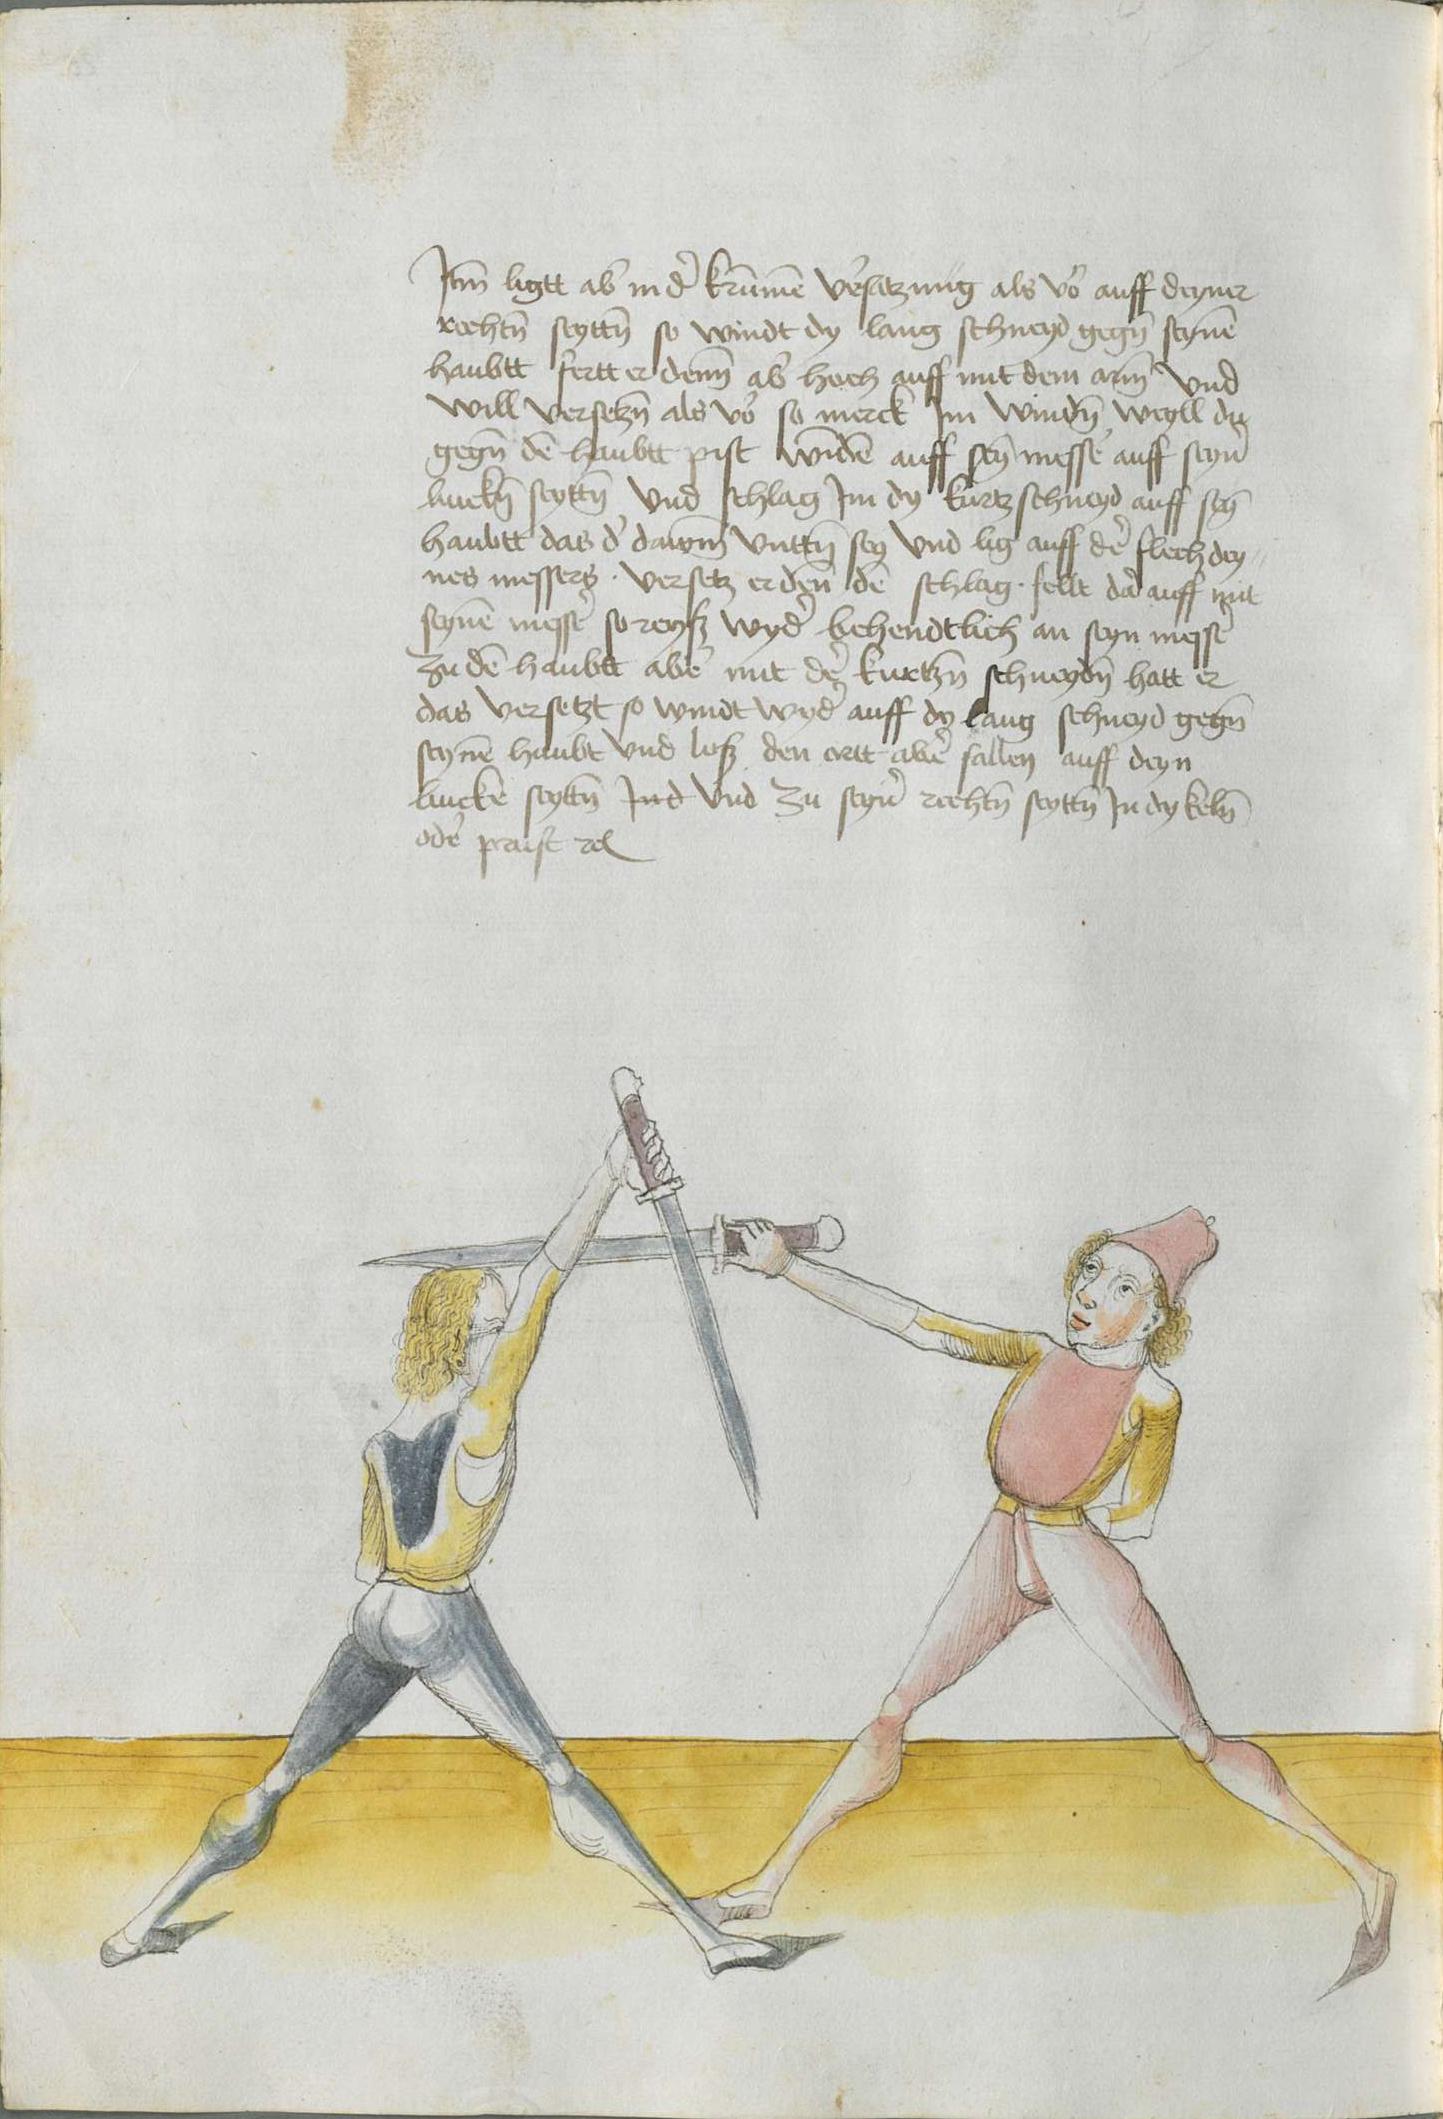 Itm̃ ligtt ab̕ in d̕ krum̄ē v̕satzung als vo̕ auff deyner
rechtñ seyttñ so windt dy lang schneyd gegñ seynē
haubtt fertt er denñ ab̕ hoch auff mit dem arm̄ vnd
will versetzñ als vo̕ so merck Im windñ weyll du
gegñ dē haubtt pist windē auff seȳ messe̕ auff seyn̕
linckñ seyttñ vnd schlag Im dy kurtz schneyd auff seȳ
haubtt das d̕ dawm̄ vnttñ sey vnd lig auff de̕ flech dey„
nes messers · versetz er deñ dē schlag · fellt da̕ auff mit
seynē messe̕ so reysz wyd̕ behendtlich an seyn messe̕
zu dē haubtt abe̕ mit de̕ kurtzñ schneydñ hatt er
das versetzt so windt wyd̕ auff dy lang schneyd gegñ
seynē haubt vnd losz den ortt abe̕ fallen auff deyn
linckē seyttñ Ind vnd zu seyn̕ rechtñ seyttñ In dy kelñ
ode̕ prust